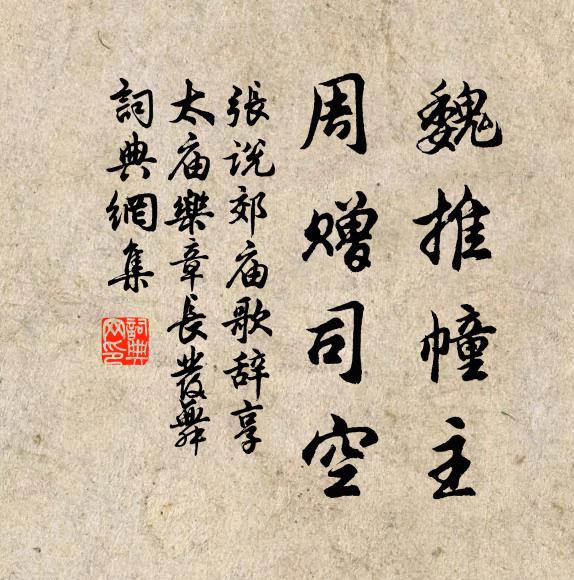 魏推幢主
周赠司空
張说郊庙歌辞享
太庙樂章長發舞
詞典網集
詞典网印